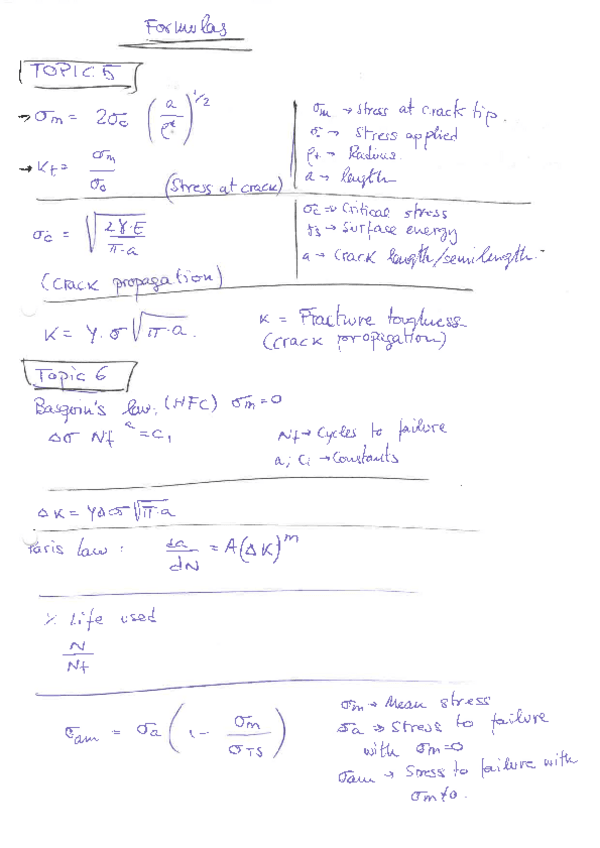 Formulas
TOPIC 5
→ σm = 2σo (a/ρt)^1/2
σm → Stress at crack tip.
σ → Stress applied
ρt → Radius.
a → length
→ Kt = σm/σo (Stress at crack)
σc = √(2γ·E/π·a)
(Crack propagation)
σc → Critical stress
γs → Surface energy
a → Crack length/semilength
K = Y·σ√π·a.
K = Fracture toughness
(crack propagation)
Topic 6
Basquin's law. (HFC) σm=0
Δσ Nf^a = C1
Nf → Cycles to failure
a; Ci → Constants
ΔK = YΔσ√π·a
Paris law: da/dN = A(ΔK)^m
% Life used
N/Nf
σam = σa (1 - σm/σTS)
σm → Mean stress
σa → Stress to failure
with σm=0
σam → Stress to failure with
σm≠0.